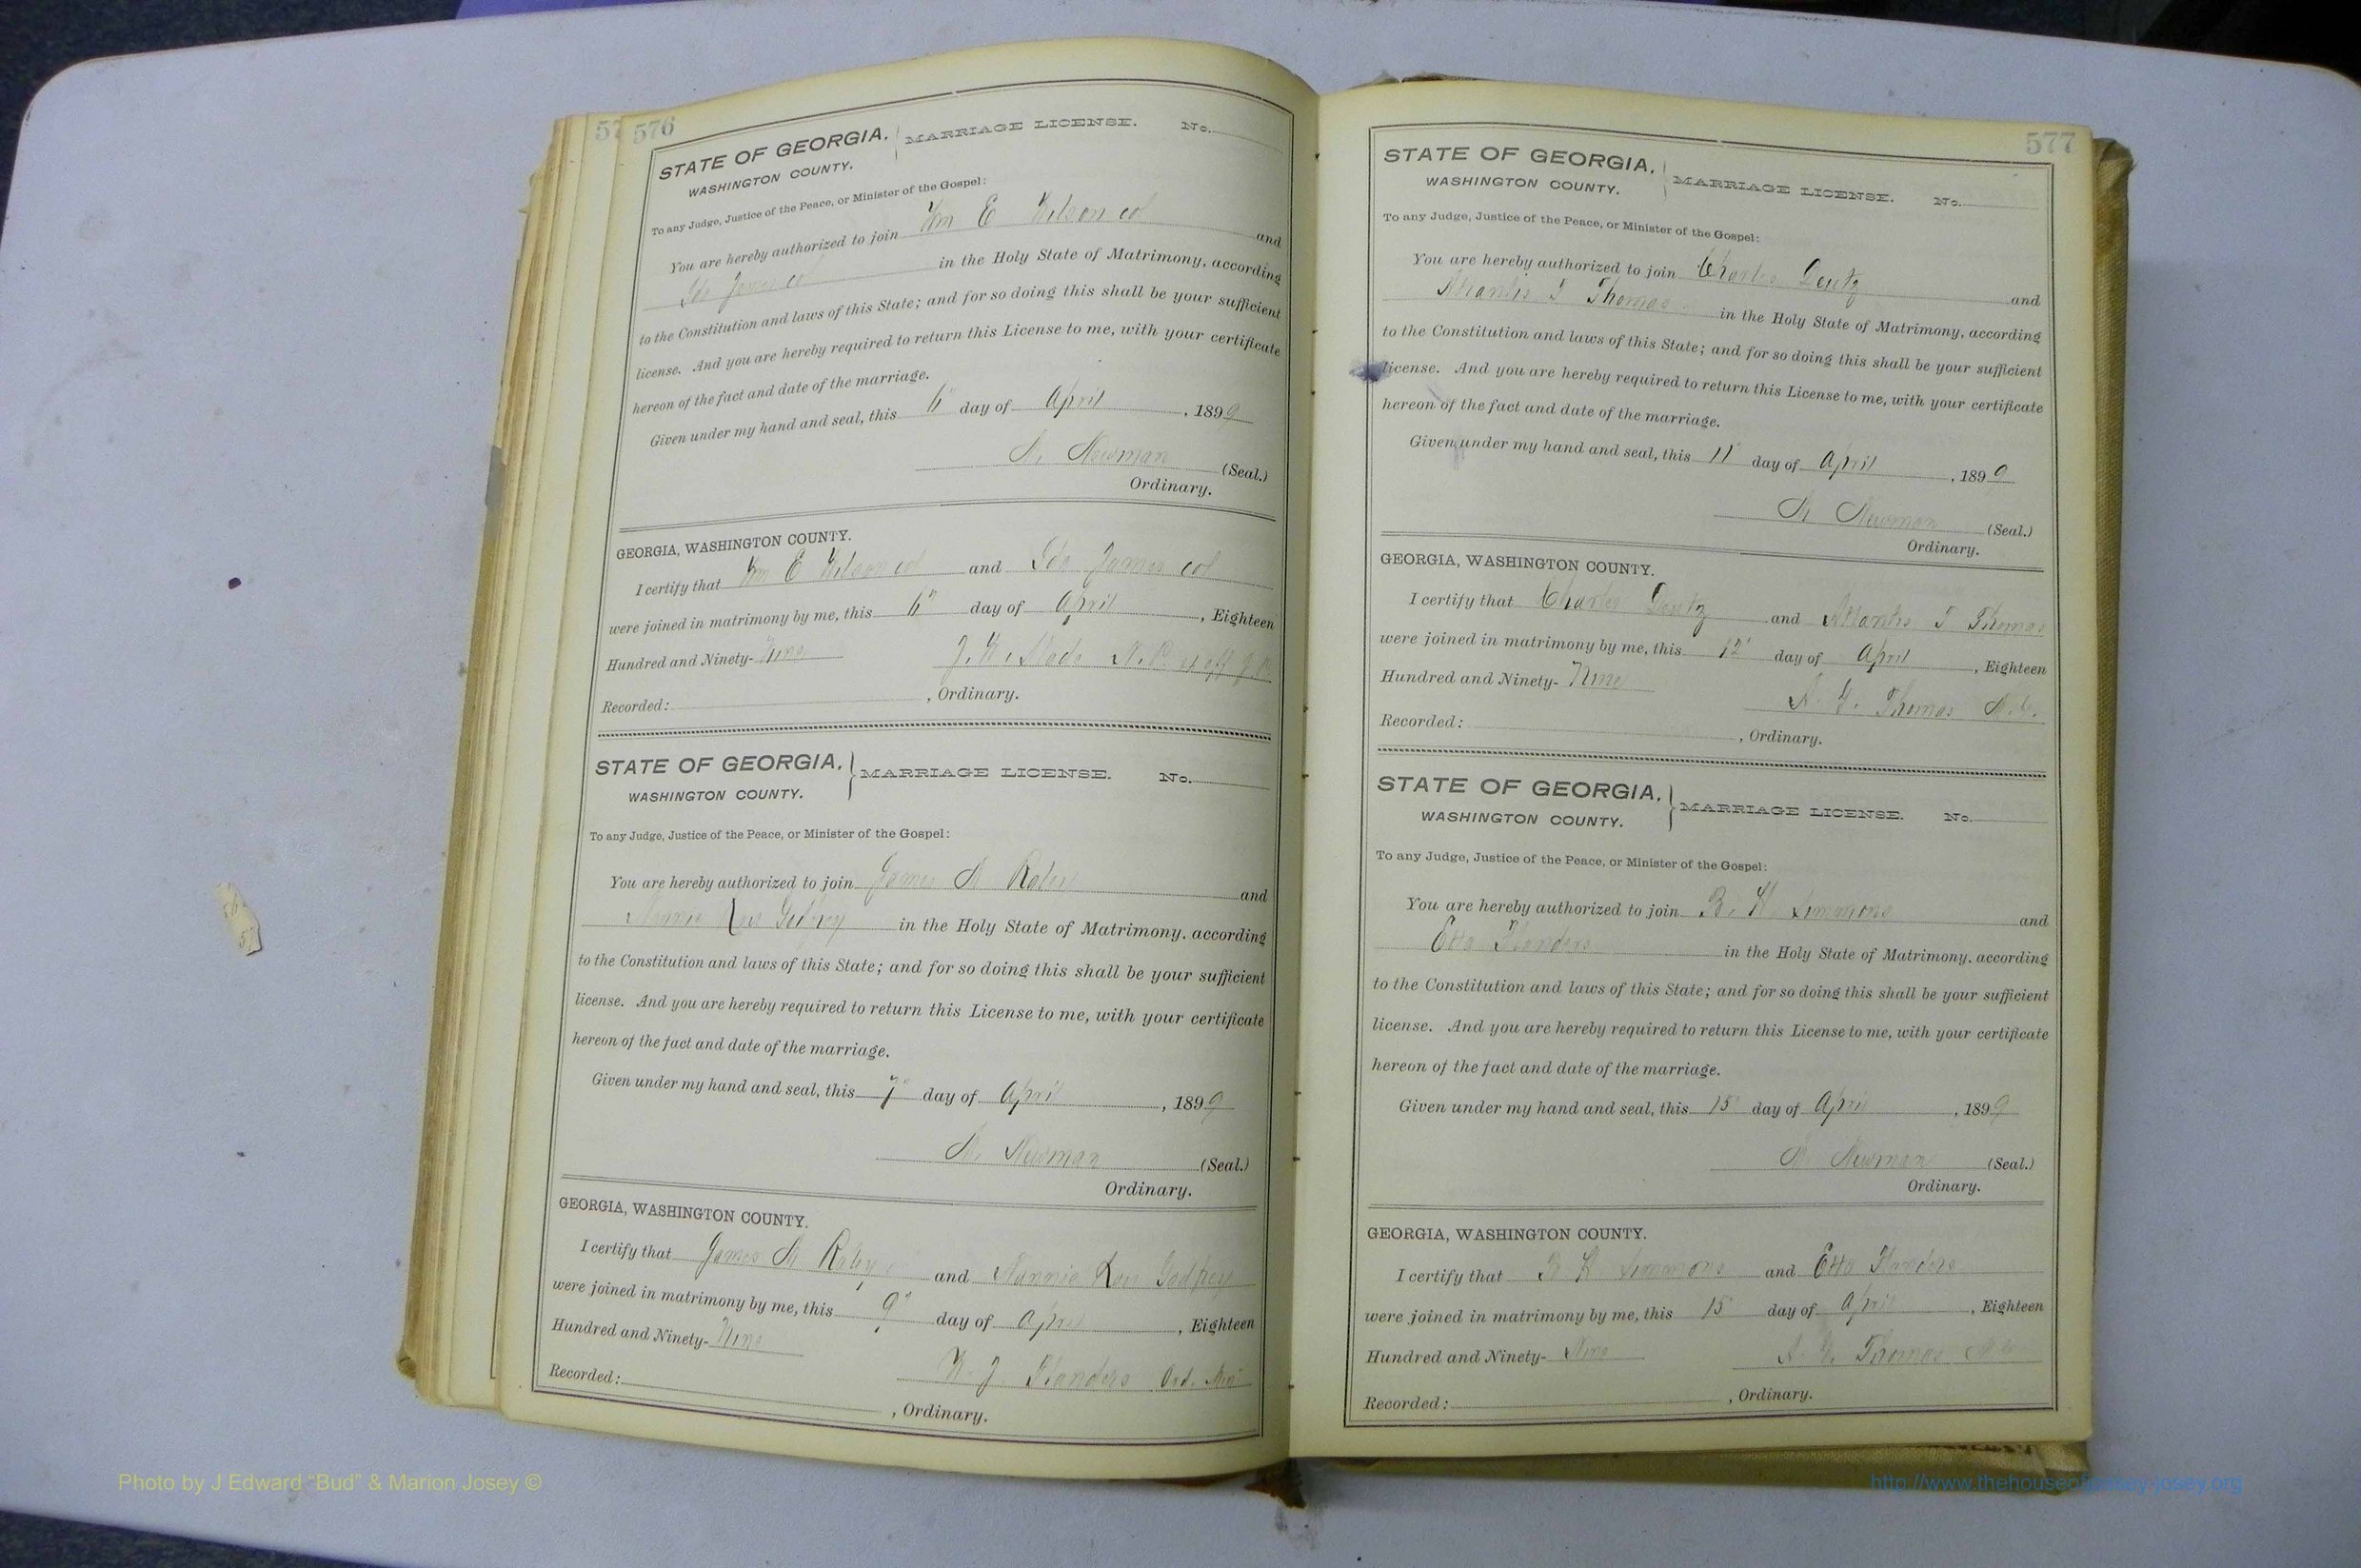 57
576
STATE OF GEORGIA. MARRIAGE LICENSE. No.
WASHINGTON COUNTY.
To any Judge, Justice of the Peace, or Minister of the Gospel:
You are hereby authorized to join Wm E Wilson col and
Ida James col in the Holy State of Matrimony, according
to the Constitution and laws of this State; and for so doing this shall be your sufficient
license. And you are hereby required to return this License to me, with your certificate
hereon of the fact and date of the marriage.
Given under my hand and seal, this 6" day of April, 1899
M. Newman (Seal.)
Ordinary.
GEORGIA, WASHINGTON COUNTY.
I certify that Wm E Wilson col and Ida James col
were joined in matrimony by me, this 6" day of April, Eighteen
Hundred and Ninety-Nine
Recorded: , Ordinary.
STATE OF GEORGIA. MARRIAGE LICENSE. No.
WASHINGTON COUNTY.
To any Judge, Justice of the Peace, or Minister of the Gospel:
You are hereby authorized to join James M Raley and
Nannie Lou Godfrey in the Holy State of Matrimony, according
to the Constitution and laws of this State; and for so doing this shall be your sufficient
license. And you are hereby required to return this License to me, with your certificate
hereon of the fact and date of the marriage.
Given under my hand and seal, this 7" day of April, 1899
M. Newman (Seal.)
Ordinary.
GEORGIA, WASHINGTON COUNTY.
I certify that James M Raley and Nannie Lou Godfrey
were joined in matrimony by me, this 9" day of April, Eighteen
Hundred and Ninety-Nine
W. J. Flanders Ord. Min
Recorded: , Ordinary.
577
STATE OF GEORGIA. MARRIAGE LICENSE. No.
WASHINGTON COUNTY.
To any Judge, Justice of the Peace, or Minister of the Gospel:
You are hereby authorized to join Charles Deutz and
Atlantis T Thomas in the Holy State of Matrimony, according
to the Constitution and laws of this State; and for so doing this shall be your sufficient
license. And you are hereby required to return this License to me, with your certificate
hereon of the fact and date of the marriage.
Given under my hand and seal, this 11" day of April, 1899
M Newman (Seal.)
Ordinary.
GEORGIA, WASHINGTON COUNTY.
I certify that Charles Deutz and Atlantis T Thomas
were joined in matrimony by me, this 12" day of April, Eighteen
Hundred and Ninety-Nine
Thomas
Recorded: , Ordinary.
STATE OF GEORGIA. MARRIAGE LICENSE. No.
WASHINGTON COUNTY.
To any Judge, Justice of the Peace, or Minister of the Gospel:
You are hereby authorized to join B. H. Simmons and
Etta Flanders in the Holy State of Matrimony, according
to the Constitution and laws of this State; and for so doing this shall be your sufficient
license. And you are hereby required to return this License to me, with your certificate
hereon of the fact and date of the marriage.
Given under my hand and seal, this 15" day of April, 1899
M. Newman (Seal.)
Ordinary.
GEORGIA, WASHINGTON COUNTY.
I certify that B H Simmons and Etta Flanders
were joined in matrimony by me, this 15" day of April, Eighteen
Hundred and Ninety-Nine
Thomas
Recorded: , Ordinary.
Photo by J Edward "Bud" & Marion Josey ©